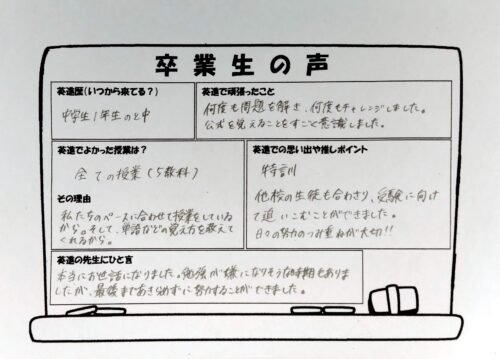 卒業生の声
英進歴（いつから来てる？）
中学生1年生のと中
英進で頑張ったこと
何度も問題を解き、何度もチャレンジしました。
公式を覚えることをすごく意識しました。
英進でよかった授業は？
全ての授業（5教科）
その理由
私たちのペースに合わせて授業をしている
から。そして、単語などの覚え方を教えて
くれるから。
英進での思い出や推しポイント
特訓
他校の生徒も合わさり、受験に向け
て追いこむことができました。
日々の努力のつみ重ねが大切!!
英進の先生にひと言
本当にお世話になりました。勉強が嫌になりそうな時期もありま
したが、最後まであきらめずに努力することができました。